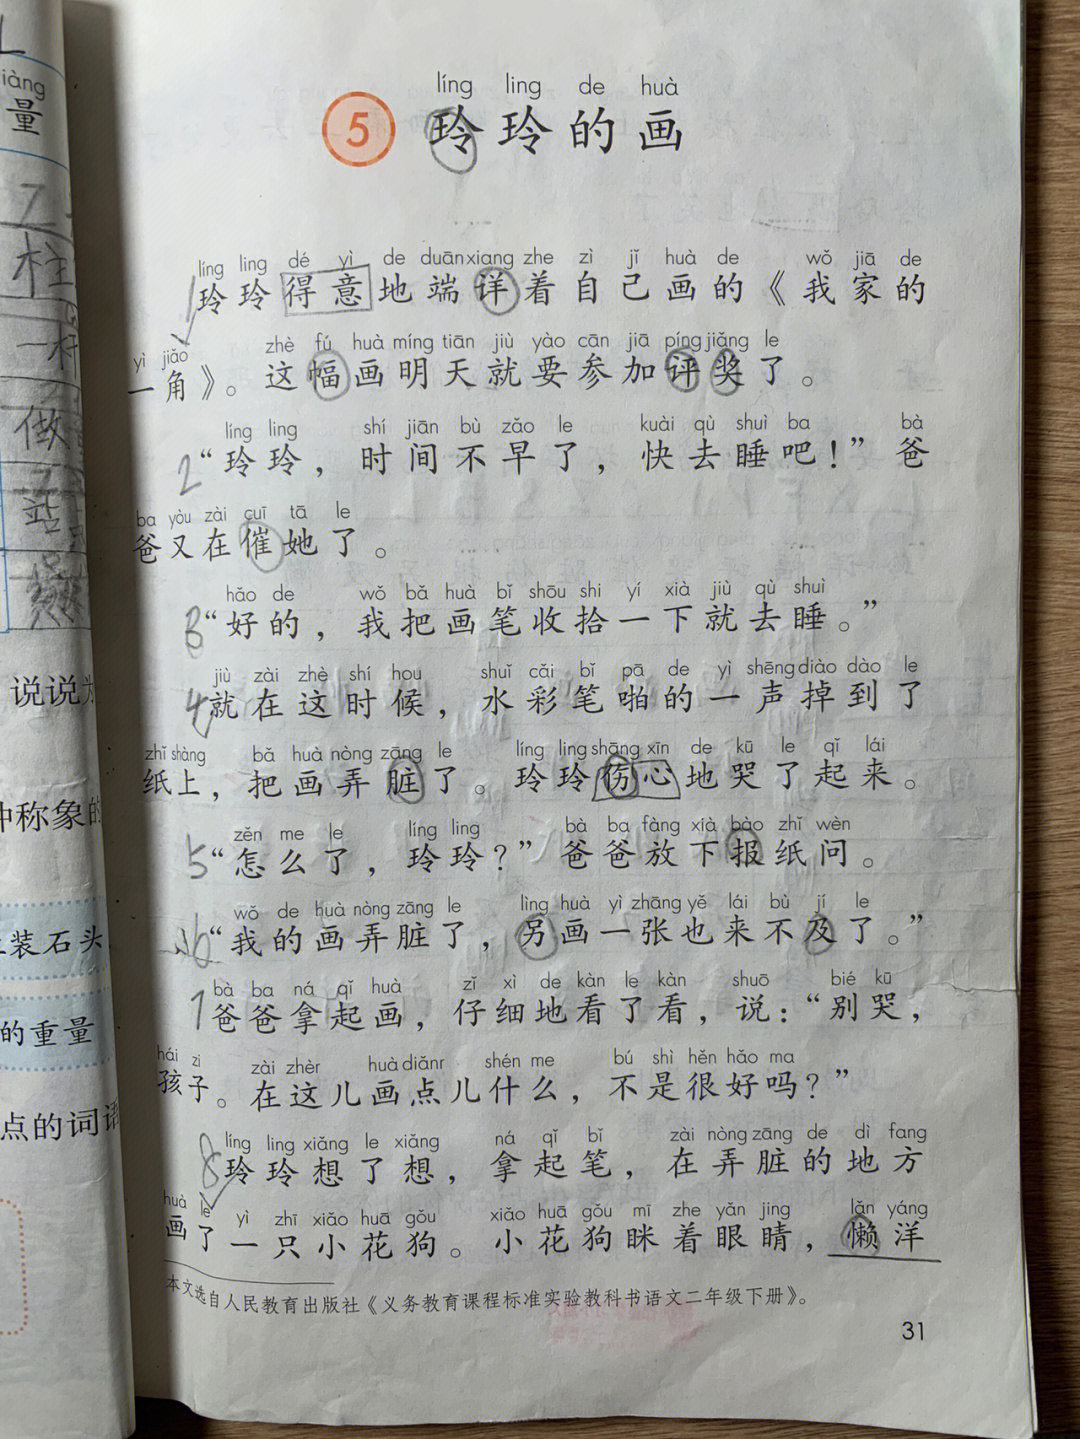 iàng
量
柱
做
说说为
称象的
装石头
的重量
点的词语
líng ling de huà
5 玲玲的画
líng ling dé yì de duān xiang zhe zì jǐ huà de wǒ jiā de
1 玲玲得意地端详着自己画的《我家的
yì jiǎo zhè fú huà míng tiān jiù yào cān jiā píng jiǎng le
一角》。这幅画明天就要参加评奖了。
líng ling shí jiān bù zǎo le kuài qù shuì ba bà
2 “玲玲，时间不早了，快去睡吧！”爸
ba yòu zài cuī tā le
爸又在催她了。
hǎo de wǒ bǎ huà bǐ shōu shi yí xià jiù qù shuì
3 “好的，我把画笔收拾一下就去睡。”
jiù zài zhè shí hou shuǐ cǎi bǐ pā de yì shēng diào dào le
4 就在这时候，水彩笔啪的一声掉到了
zhǐ shàng bǎ huà nòng zāng le líng ling shāng xīn de kū le qǐ lái
纸上，把画弄脏了。玲玲伤心地哭了起来。
zěn me le líng ling bà ba fàng xià bào zhǐ wèn
5 “怎么了，玲玲？”爸爸放下报纸问。
wǒ de huà nòng zāng le lìng huà yì zhāng yě lái bù jí le
6 “我的画弄脏了，另画一张也来不及了。”
bà ba ná qǐ huà zǐ xì de kàn le kàn shuō bié kū
7 爸爸拿起画，仔细地看了看，说：“别哭，
hái zi zài zhèr huà diǎnr shén me bú shì hěn hǎo ma
孩子。在这儿画点儿什么，不是很好吗？”
líng ling xiǎng le xiǎng ná qǐ bǐ zài nòng zāng de dì fang
8 玲玲想了想，拿起笔，在弄脏的地方
huà le yì zhī xiǎo huā gǒu xiǎo huā gǒu mī zhe yǎn jing lǎn yáng
画了一只小花狗。小花狗眯着眼睛，懒洋
本文选自人民教育出版社《义务教育课程标准实验教科书语文二年级下册》。
31